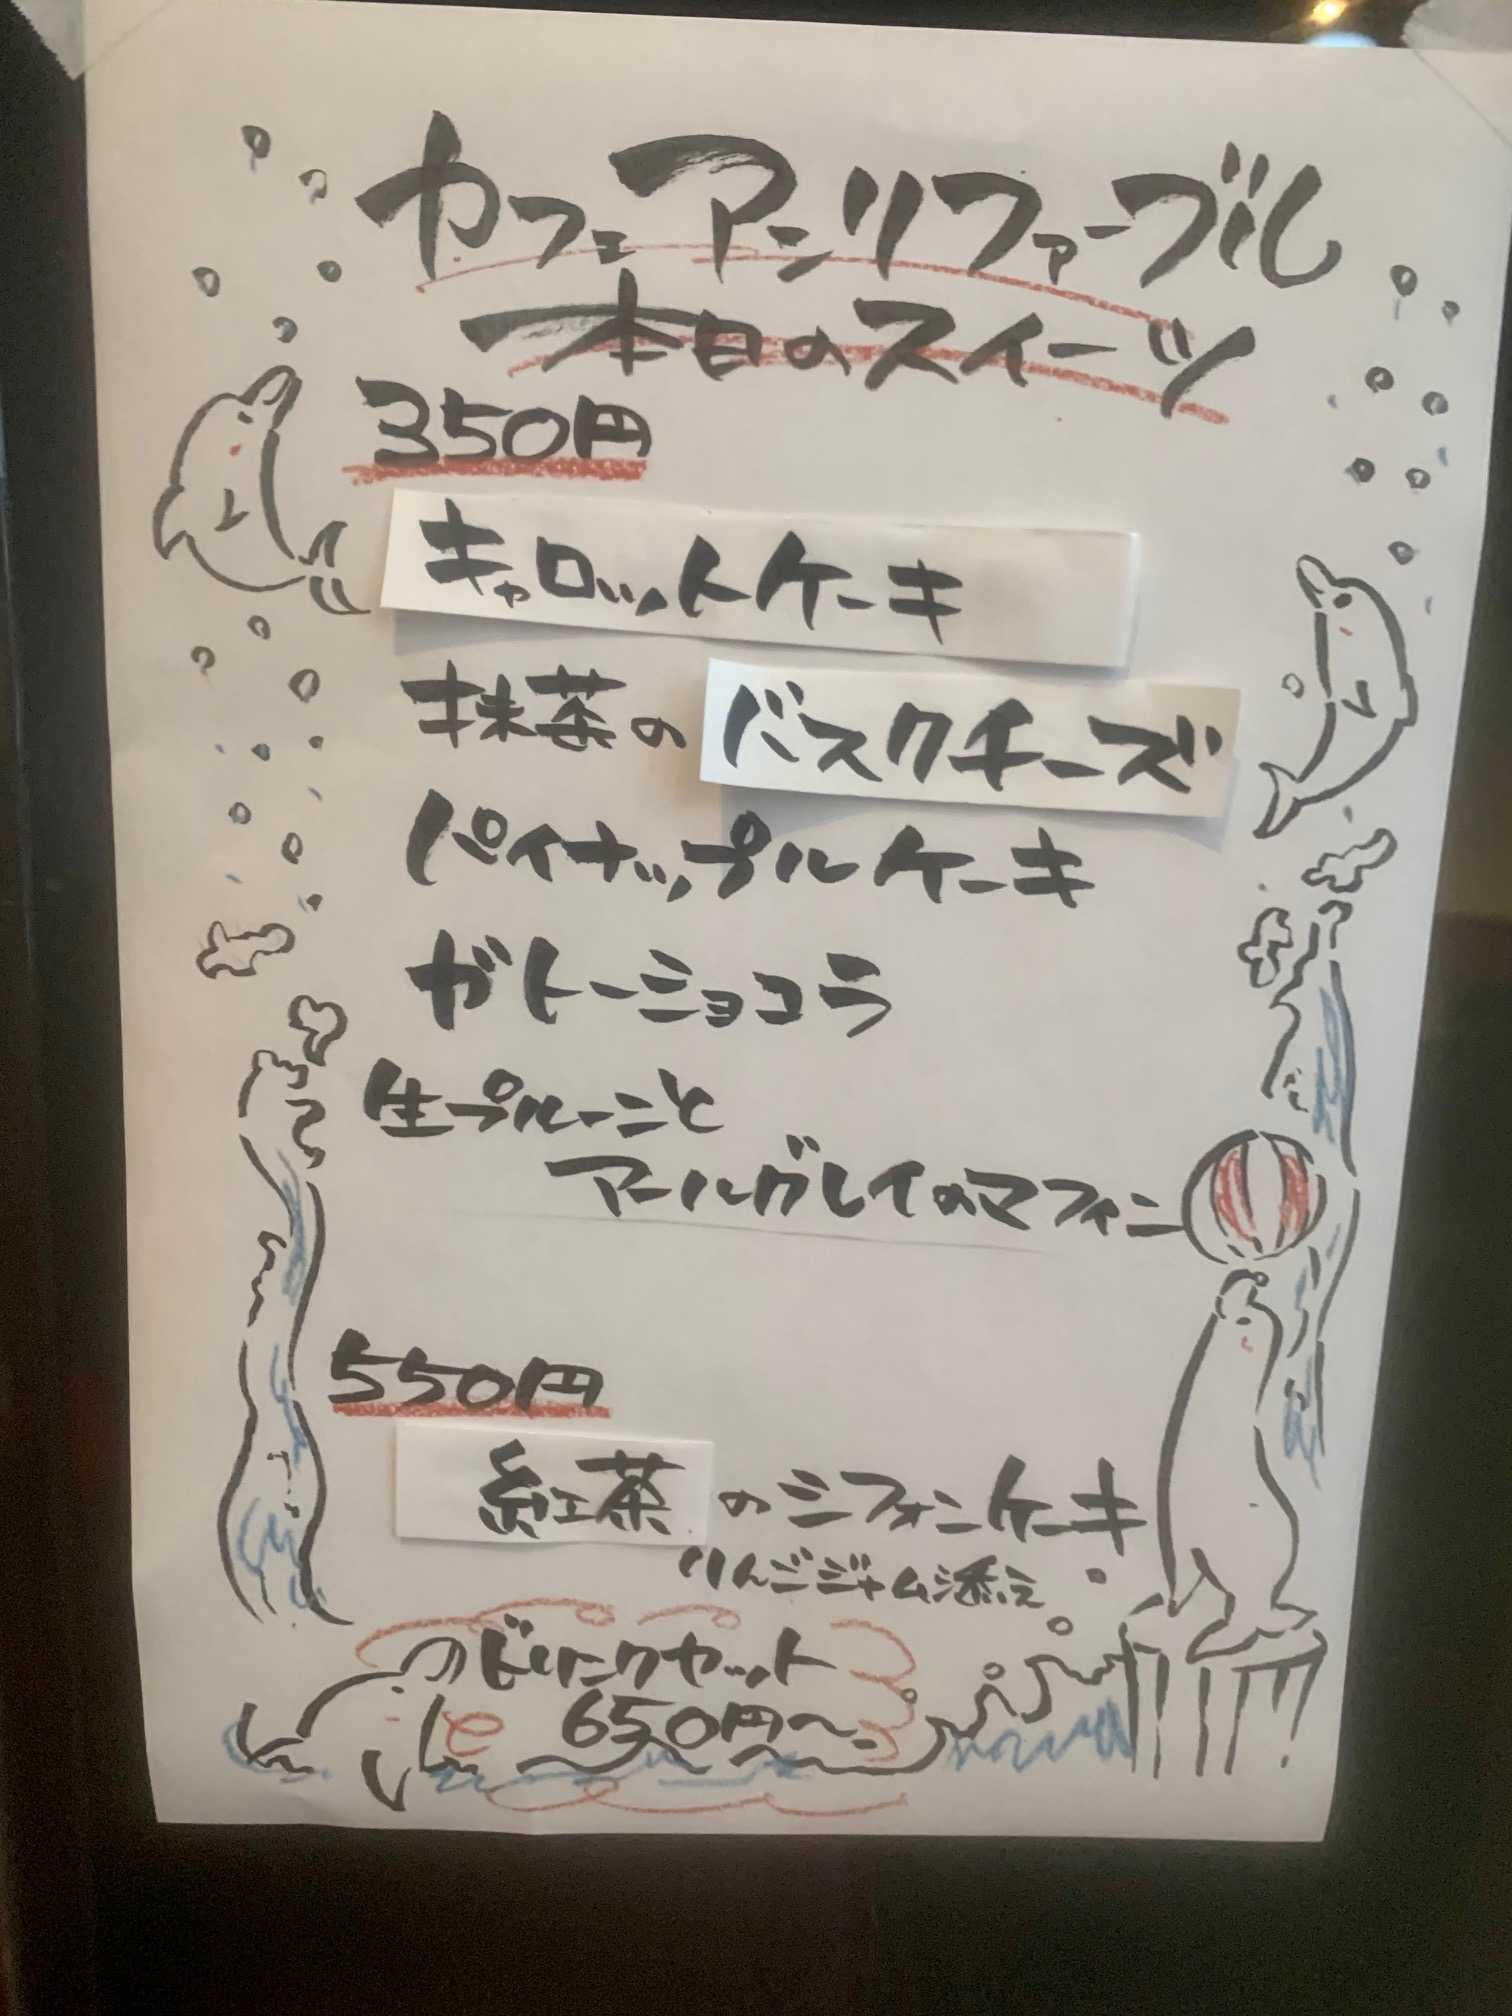 カフェ アンリファーブル
本日のスイーツ
350円
キャロットケーキ
抹茶のバスクチーズ
パイナップルケーキ
ガトーショコラ
生プルーンと
アールグレイのマフィン
550円
紅茶のシフォンケーキ
りんごジャム添え
ドリンクセット
650円〜